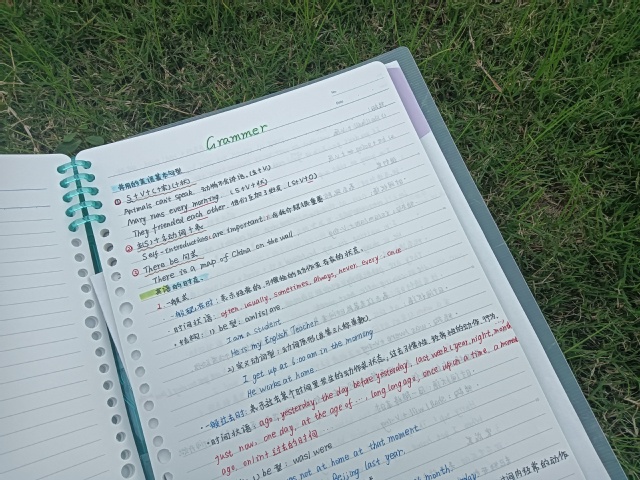 Grammer
常用的英语基本句型
① S+V+(+宾)(+状)
Animals can't speak. 动物不会讲话。(S+V)
Mary runs every morning. (S+V+状)
They friended each other. (S+V+O)
② 主(S)+系动词+表
Self-introductions are important. 自我介绍很重要
③ There be 句式
There is a map of China on the wall
英语的时态
1. 一般式
·一般现在时:表示经常的、习惯性的动作或存在的状态.
·时间状语: often, usually, sometimes, always, never, every, once
·结构: 1) be型: am/is/are
I am a student
He is my English Teacher
2) 实义动词型:
I get up at 6:00am in the morning
He works at home
·一般过去时: 表示过去某个时间里发生的动作或状态;过去习惯性、
·时间状语: ago, yesterday, the day before yesterday, last week (year, night, month
just now, one day, at the age of ..., long long ago, once upon a time, a moment
ago, on/in+过去的时间...
1) be型: was/were
was not at home at that moment
Beijing last year.
month